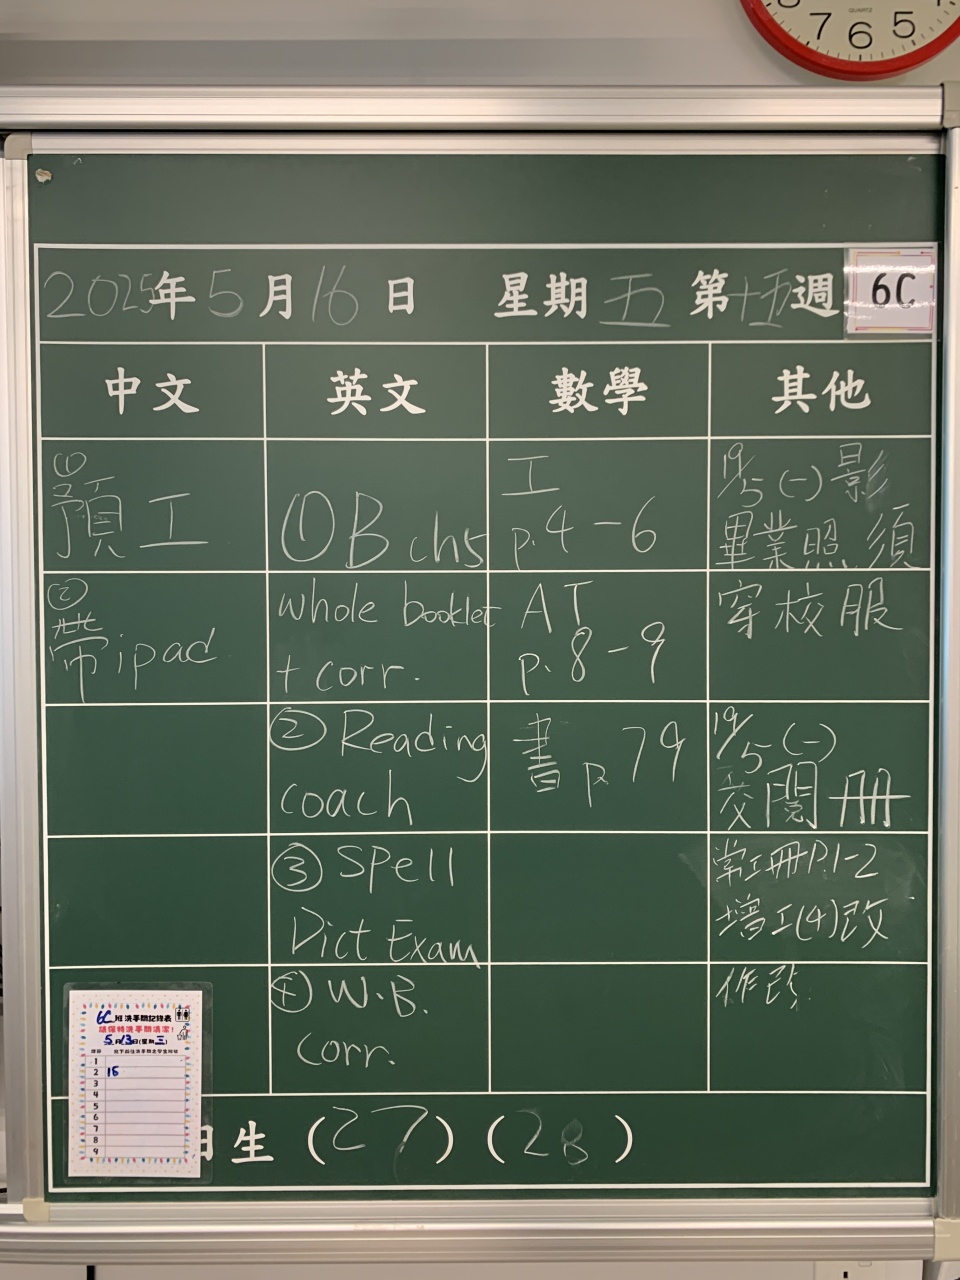 7 6 5
QUARTZ
2025年5月16日 星期五 第十五週 6C
中文 英文 數學 其他
①
預工
②
帶ipad
①B ch5
whole booklet
+ corr.
② Reading
coach
③ Spell
Dict Exam
④ W.B.
corr.
工
p.4-6
AT
p.8-9
書 p.79
19/5(一)影
畢業照須
穿校服
19/5(一)
交閱冊
常工冊P.1-2
增工(4)改
作改
6C班洗手間記錄表
請保持洗手間清潔!
5月13日(星期三)
1
2 15
3
4
5
6
7
8
9
日生 (27) (28)